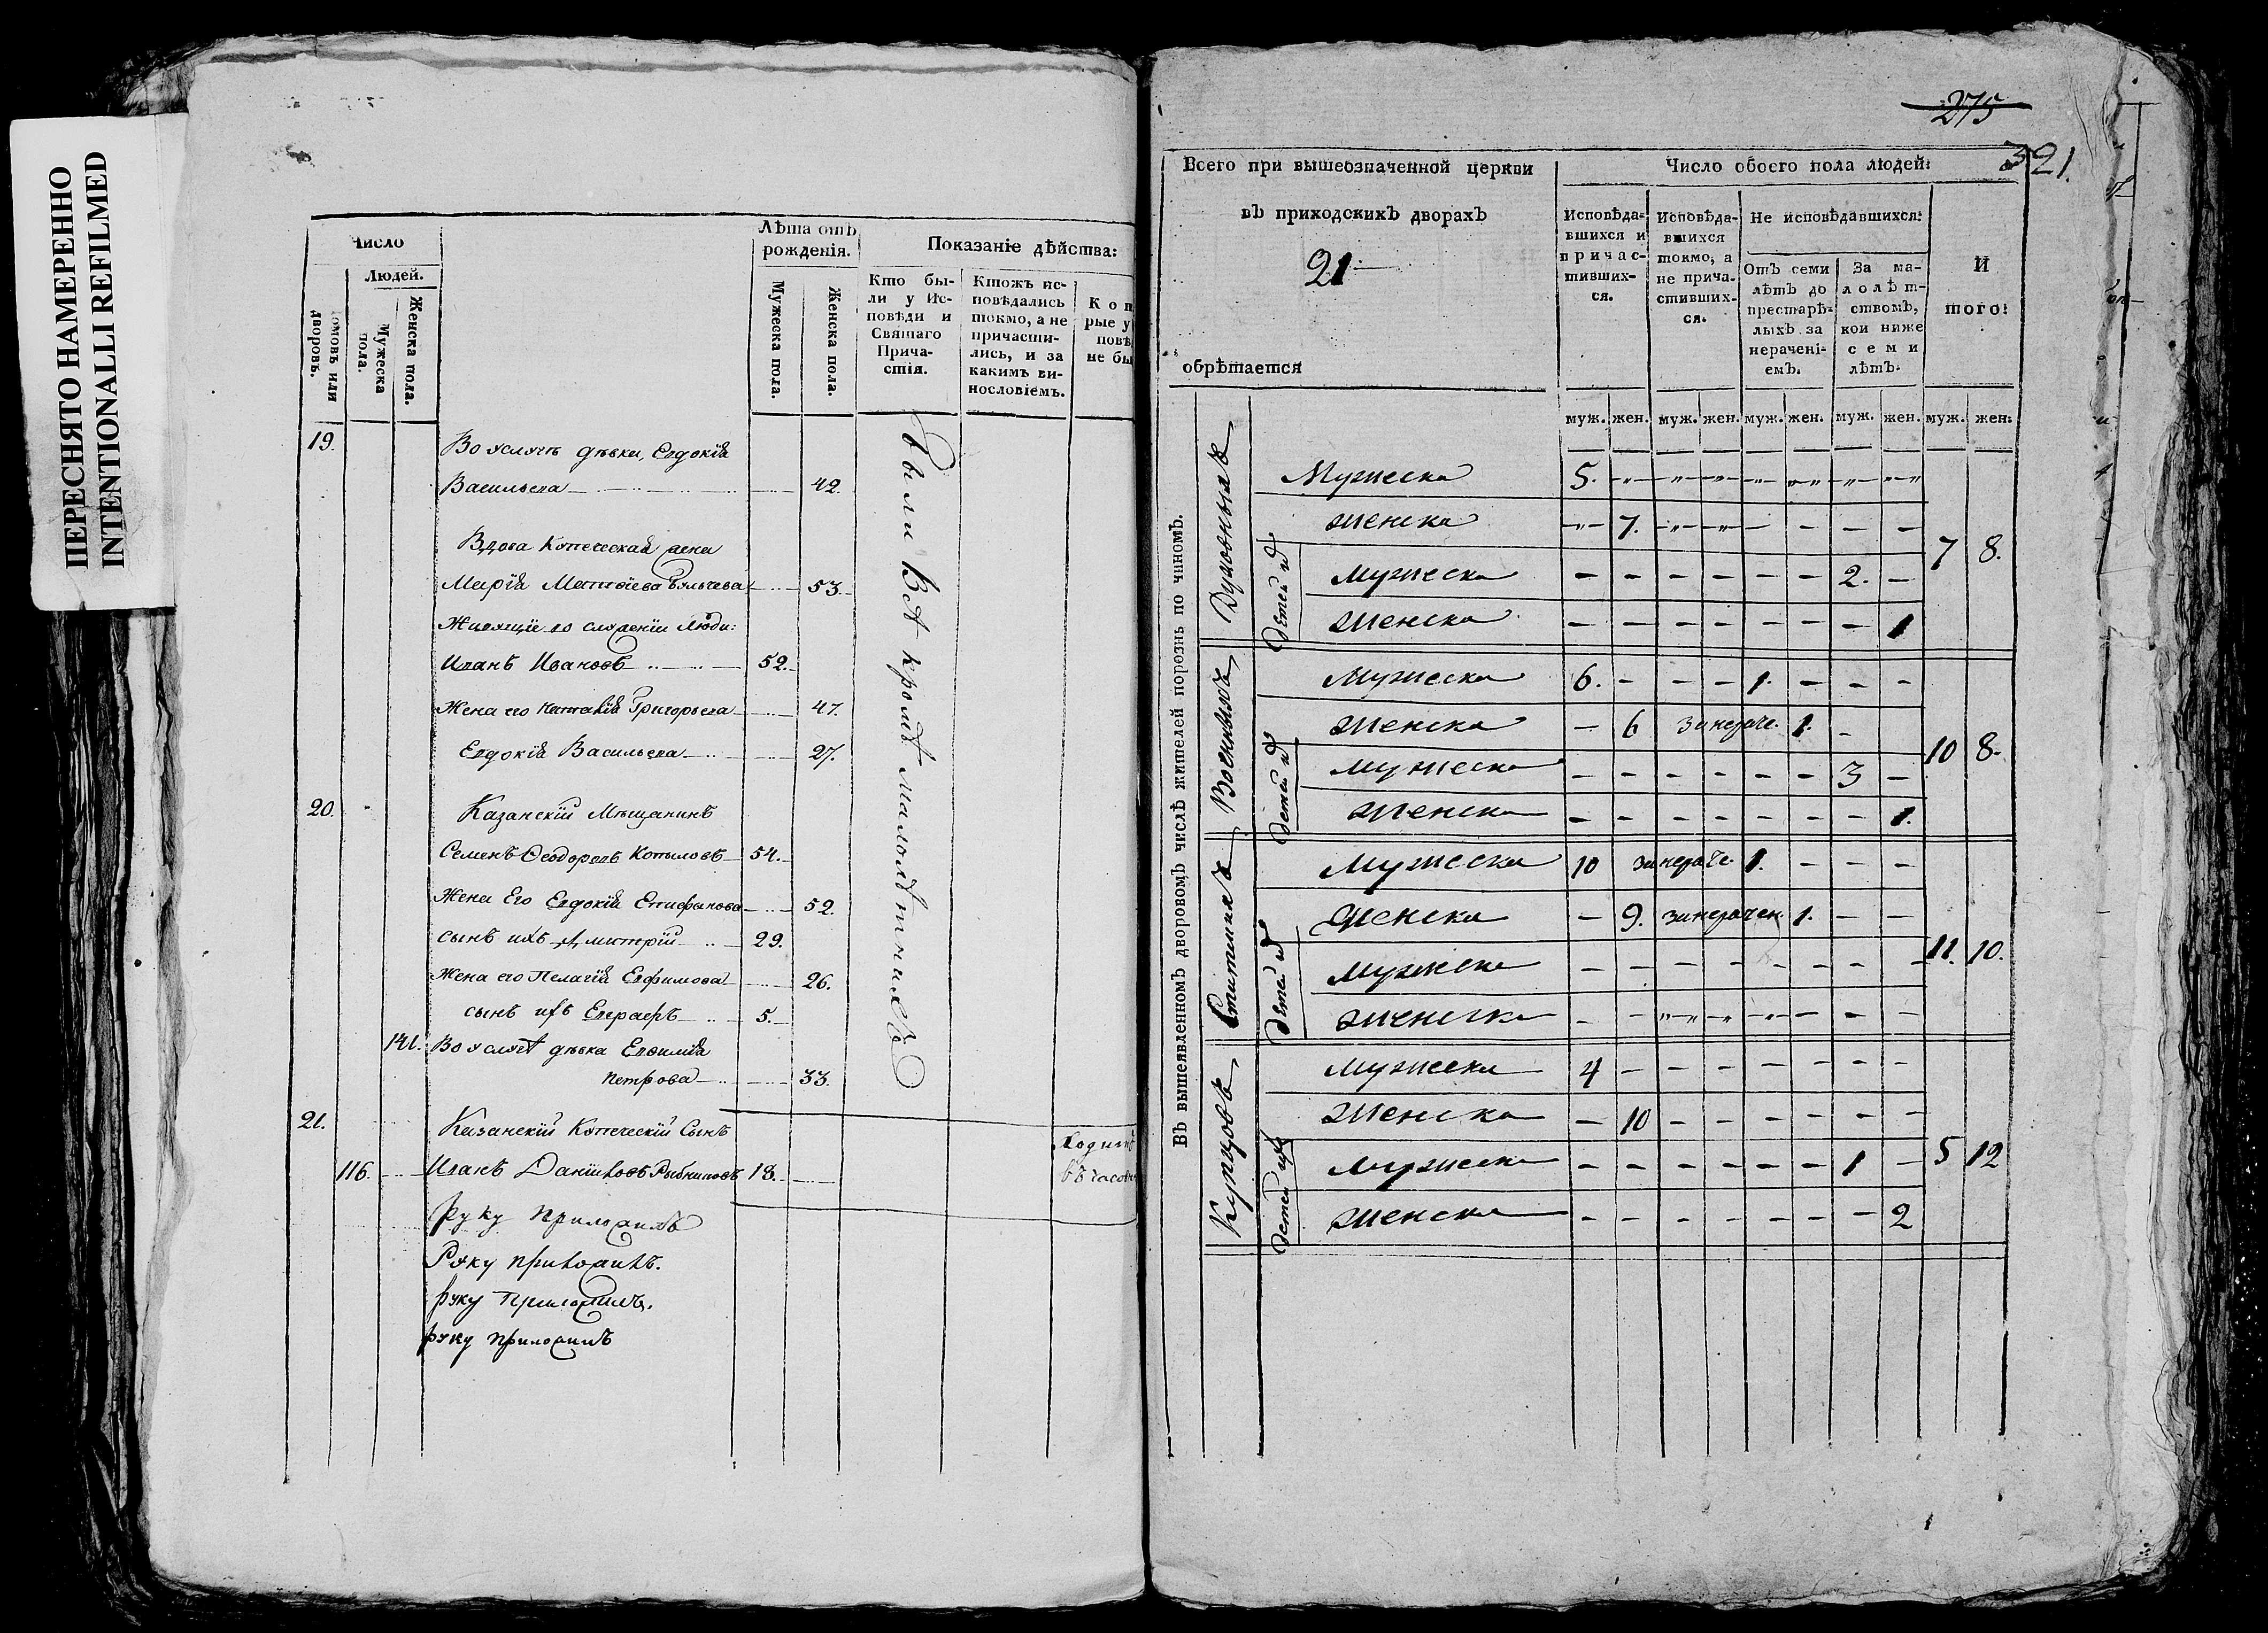 ПЕРЕСНЯТО НАМЕРЕННО
INTENTIONALLI REFILMED
Число
Людей.
домовъ или дворовъ.
Мужеска пола.
Женска пола.
Лѣта отъ рожденія.
Мужеска пола.
Женска пола.
Показаніе дѣйства:
Кто бы-
ли у Ис-
повѣди и
Святаго
Прича-
стія.
Ктожъ ис-
повѣдались
токмо, а не
причасти-
лись, и за
какимъ ви-
нословіемъ.
Кот
рые у
повѣ
не бы
19.
Во услуг дѣвка, Евдокія
Васильева 42.
Вдова Купеческая жена
Марія Матвіева 53.
Живящіе во служеніи Люди:
Иванъ Ивановъ 52.
Жена его Наталія Григорьева 47.
Евдокія Васильева 27.
20. Казанскій Мѣщанинъ
Семенъ Феодоровъ Копыловъ 54.
Жена Его Евдокія Епифанова 52.
сынъ ихъ Дмитрій 29.
Жена его Пелагія Евфимова 26.
сынъ ихъ Евграфъ 5.
141. Во услугѣ дѣвка Евфимія
Петрова 33.
21. Казанскій Купеческій Сынъ
116. Иванъ Даниловъ Рыбниковъ 18.
Ходитъ
въ часовн
Были Всѣ кромѣ малолѣтнихъ
Руку приложилъ
Руку приложилъ.
руку Приложилъ.
руку приложилъ
275
321.
Всего при вышеозначенной церкви
въ приходскихъ дворахъ
21
обрѣтается
Число обоего пола людей:
Исповѣда-
вшихся и
причас-
тивших-
ся.
Исповѣда-
вшихся
токмо, а
не прича-
стивших-
ся.
Не исповѣдавшихся:
Отъ семи
лѣтъ до
престарѣ-
лыхъ за
нерачені-
емъ.
За ма-
лолѣт-
ствомъ,
кои ниже
семи
лѣтъ.
И
того:
муж. жен. муж. жен. муж. жен. муж. жен. муж. жен.
Въ вышеявленномъ дворовомъ числѣ жителей порознь по чиномъ.
Духовныхъ
Мужеска 5.
Женска 7.
Детей ихъ
Мужеска 2.
Женска 1
7 8.
Военныхъ
Мужеска 6. 1.
Женска 6 за нераче. 1.
Детей ихъ
Мужеска 3
Женска 1.
10 8.
Статскихъ
Мужеска 10 за нераче. 1.
Женска 9. за нерачен. 1.
Детей ихъ
Мужеска
Женска
11. 10.
Купцовъ
Мужеска 4
Женска 10
Детей ихъ
Мужеска 1
Женска 2
5 12